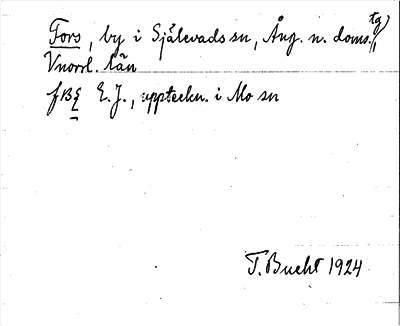 Fors, by i Själevads sn, Ång. n. doms.tg,
Vnorrl. län
E. J., uppteckn. i Mo sn
T. Bucht 1924